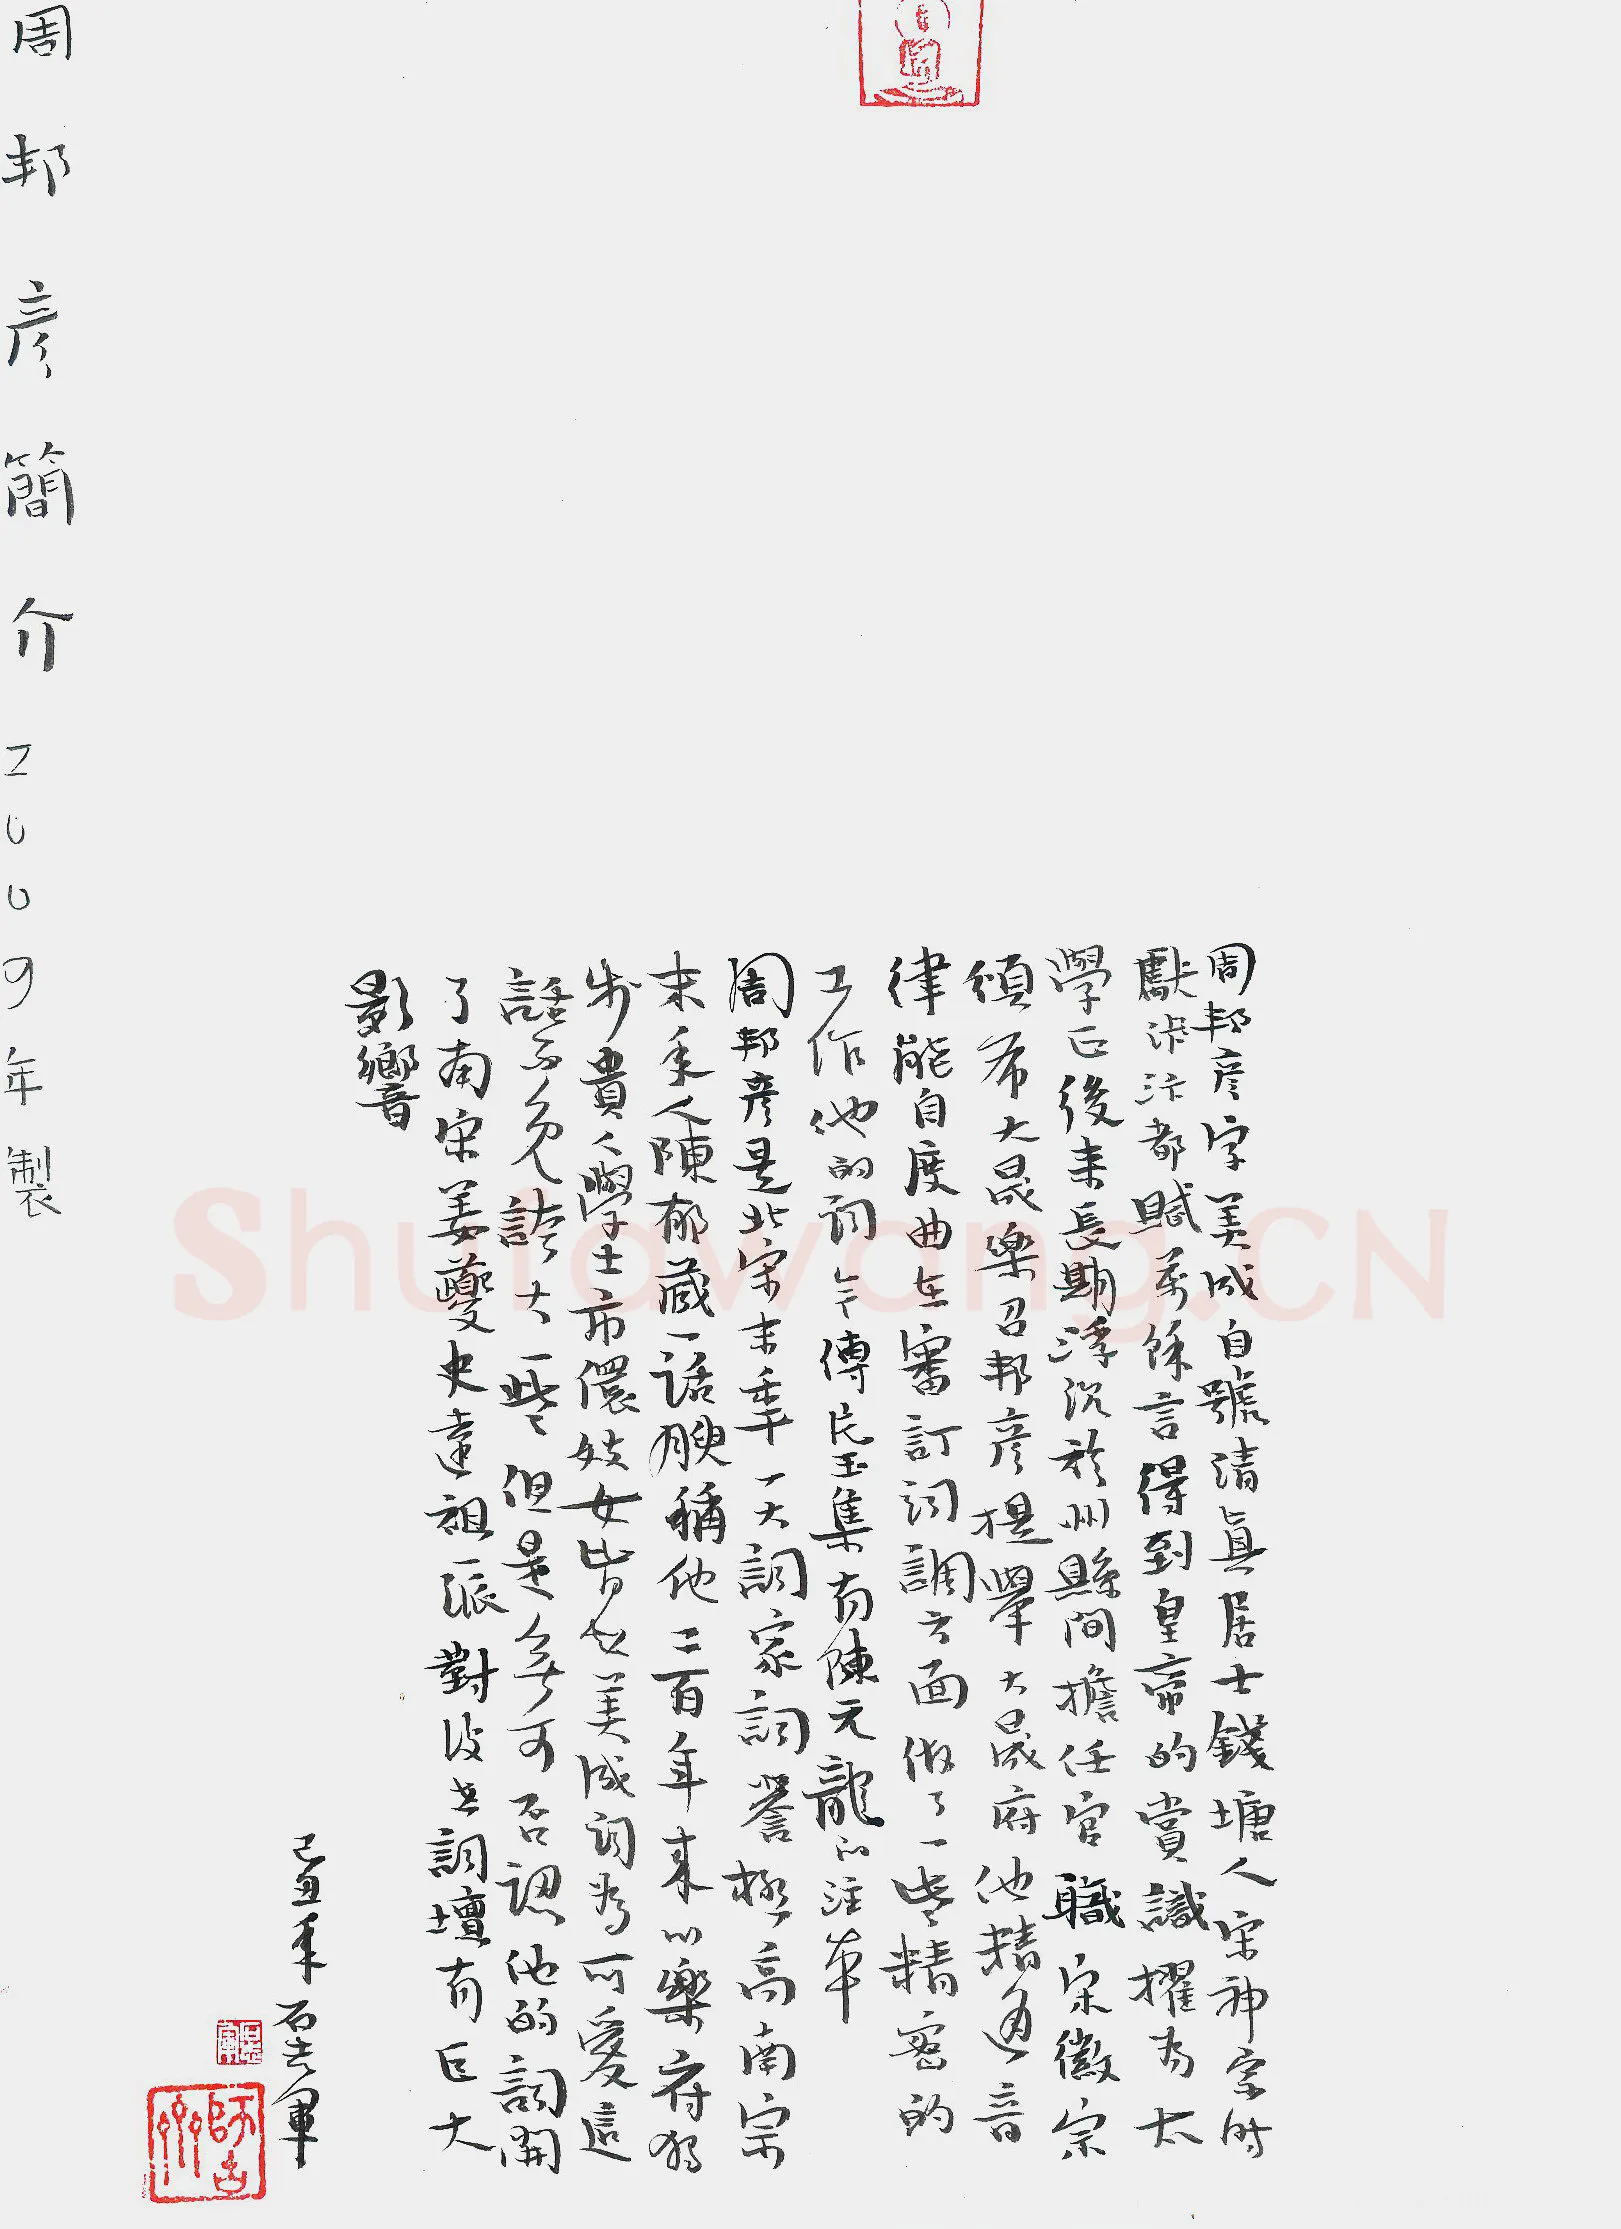 周邦彦字美成自號清真居士錢塘人宋神宗時
獻汴都賦萬餘言得到皇帝的賞識擢為太
學正後来長期浮沉於州縣間擔任官職宋徽宗
頒布大晟樂召邦彦提舉大晟府他精通音
律能自度曲在審訂詞調方面做了一些精密的
工作他的詞今傳片玉集有陳元龍的注本
周邦彦是北宋末年一大詞家詞譽極高南宗
末年人陳郁藏一話腴稱他二百年来以樂府獨
步貴人學士市儇妓女皆知美成詞為可愛這
話不免誇大一些但是無可否認他的詞開
了南宋姜夔史達祖一派對後世詞壇有巨大
影響
己丑年石基軍
周邦彦簡介2009年製
ShufawangCN